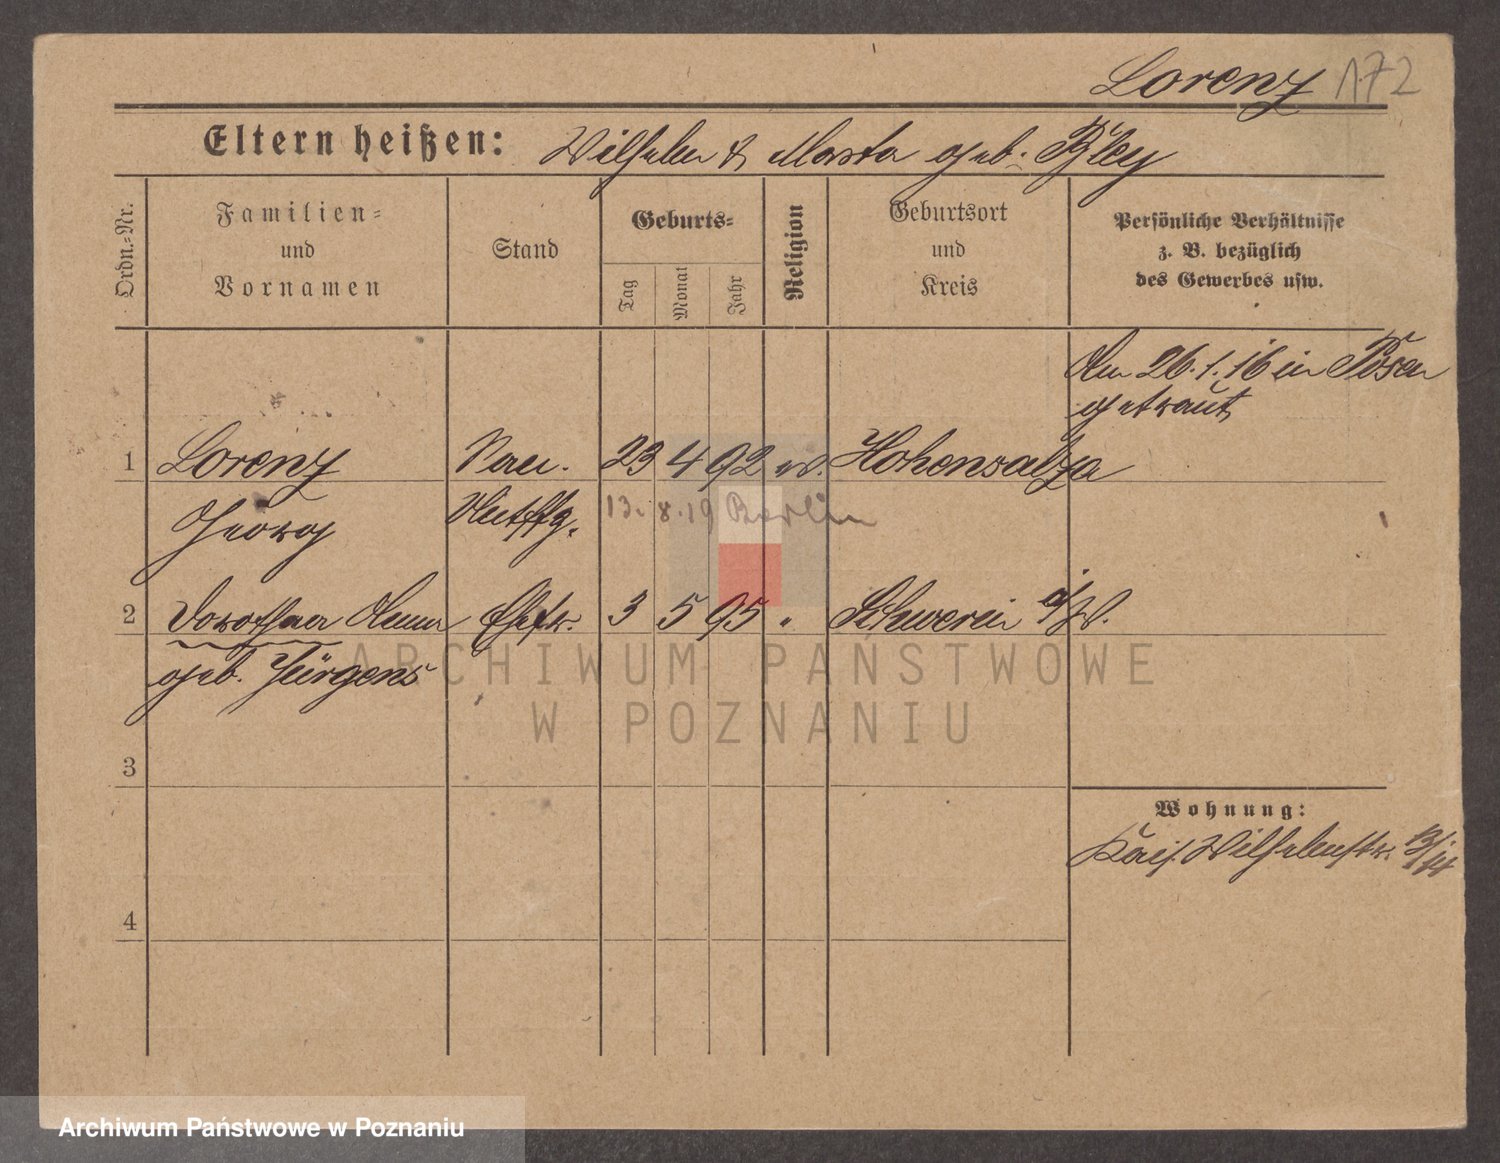 Lorenz 172
Eltern heißen: Wilhelm & Marta geb. Bley
Ordn.-Nr.
Familien-
und
Vornamen
Stand
Geburts-
Tag
Monat
Jahr
Religion
Geburtsort
und
Kreis
Persönliche Verhältnisse
z. B. bezüglich
des Gewerbes usw.
Am 26.1.16 in Posen
getraut
1 Lorenz 23 4 92 Hohensalza
Georg
13. 8. 19 Berlin
2 Dorothea Anna Ehefr. 3 5 95 " Schwerin a/W.
geb. Jürgens
3
4
Wohnung:
Kais. Wilhelmstr. 13/14
ARCHIWUM PAŃSTWOWE
W POZNANIU
Archiwum Państwowe w Poznaniu